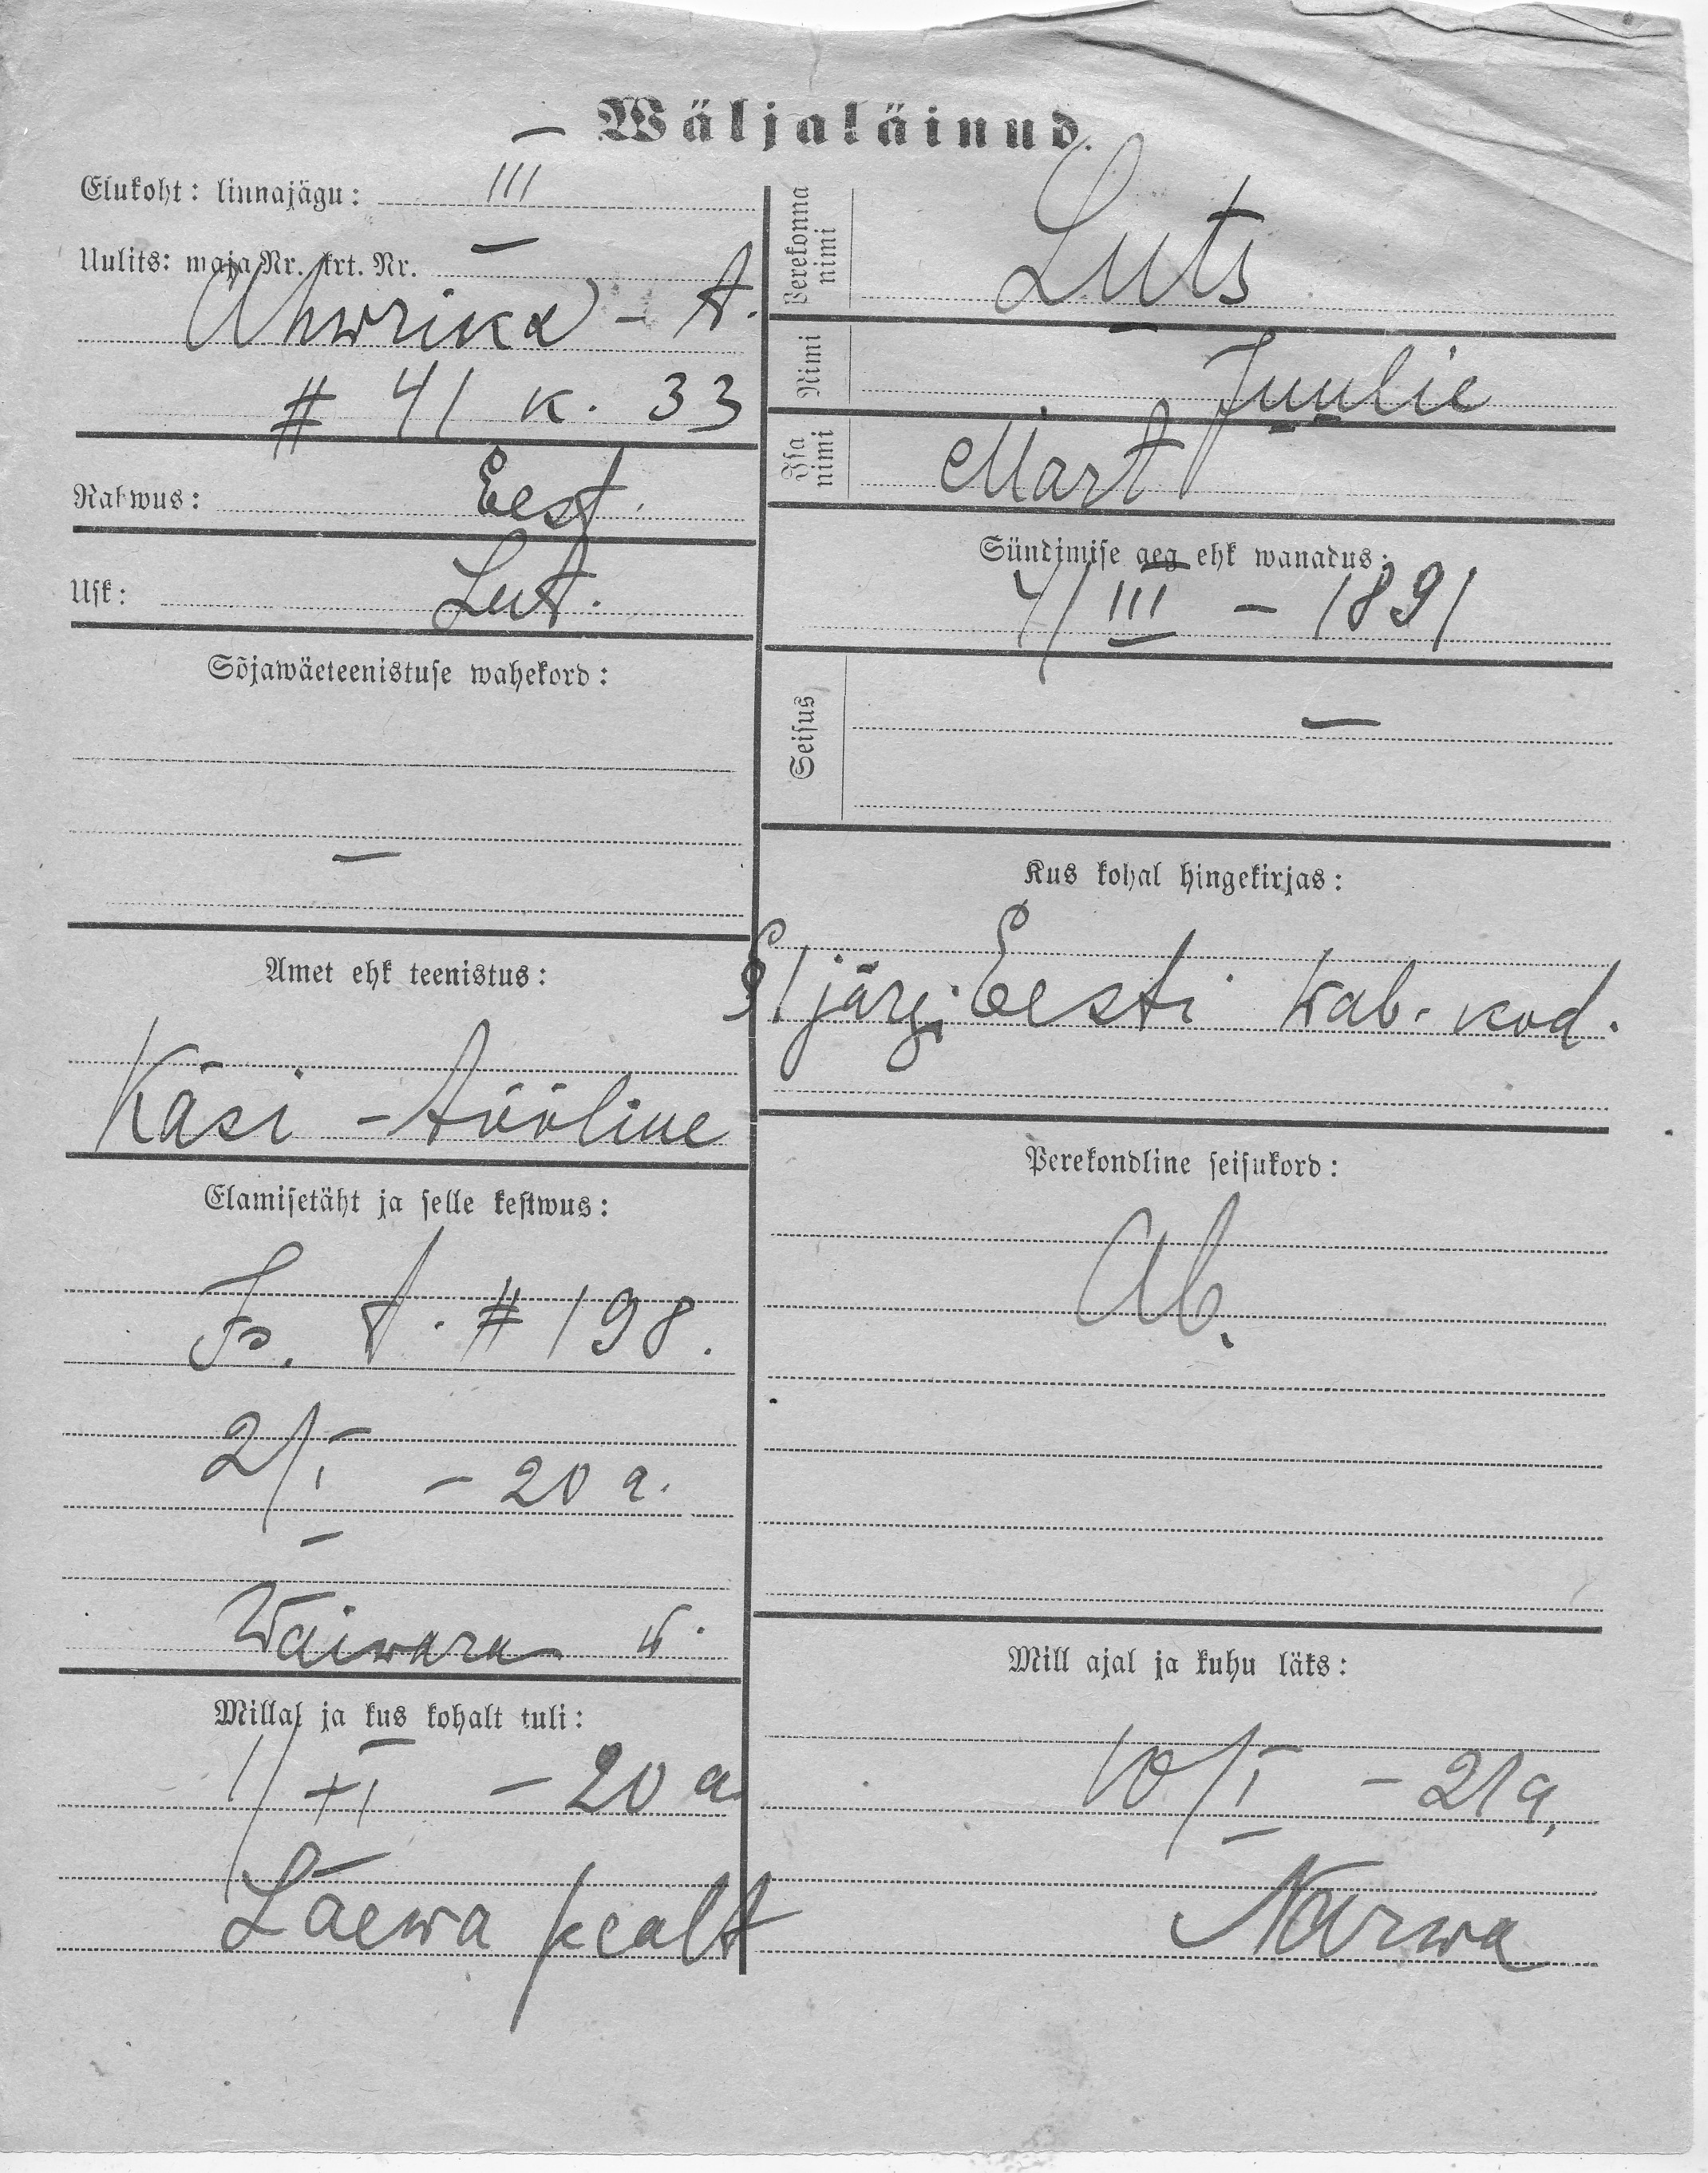 Wäljaläinud.
Elukoht: linnajägu: III
Uulits: maja Nr. krt. Nr.
Ahwrika - t.
# 41 k. 33
Rahwus: Eest.
Usk: Lut.
Sõjawäeteenistuse wahekord:
—
Amet ehk teenistus:
Käsi - tööline
Elamisetäht ja selle kestwus:
t. # 198.
2/I - 20 a.
Waiwara w.
Millal ja kus kohalt tuli:
1/XI - 20 a
Laewa pealt
Perekonna nimi Luts
Nimi Juulie
Isa nimi Mart
Sündimise aeg ehk wanadus:
4/III - 1891
Seisus —
Kus kohal hingekirjas:
järg. Eesti wab. kod.
Perekondline seisukord:
Ab.
Mill ajal ja kuhu läks:
10/I - 21 a.
Narwa